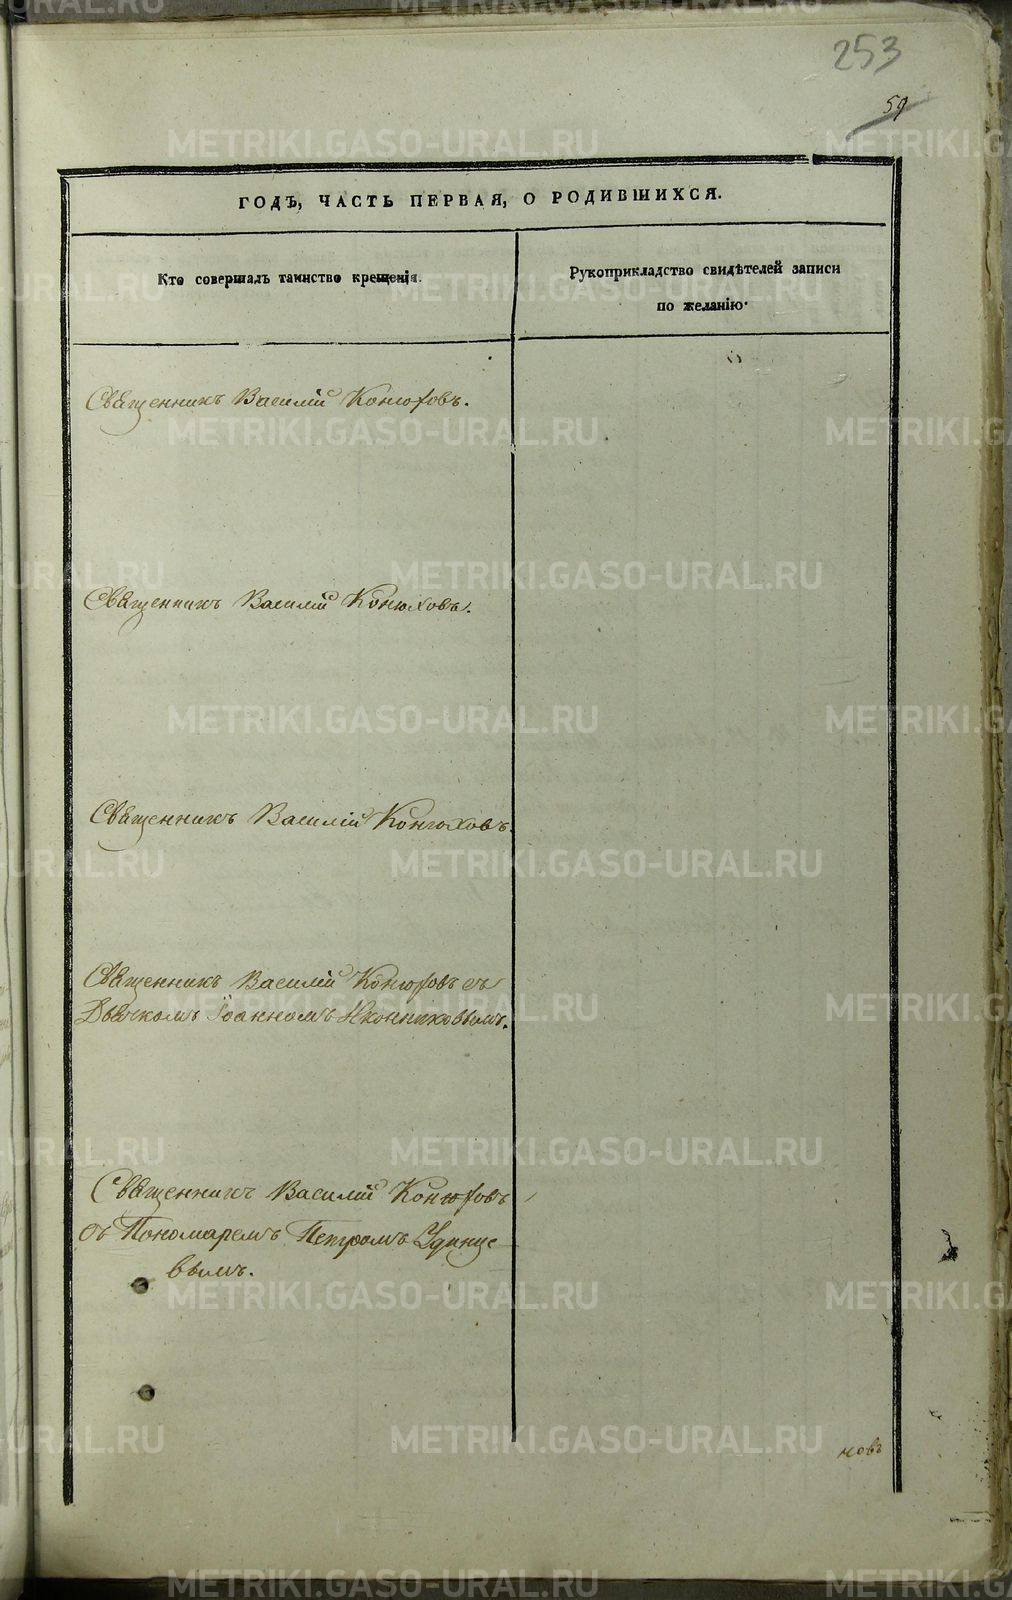 253
59
ГОДЪ, ЧАСТЬ ПЕРВАЯ, О РОДИВШИХСЯ.
Кто совершалъ таинство крещенія.
Рукоприкладство свидѣтелей записи
по желанію.
Священникъ Василій Конюховъ.
Священникъ Василій Конюховъ.
Священникъ Василій Конюховъ.
Священникъ Василій Конюховъ съ
Дьячкомъ Іоанномъ Иконниковымъ.
Священникъ Василій Конюховъ
съ Пономаремъ Петромъ Удинце
вымъ.
ковъ
METRIKI.GASO-URAL.RU